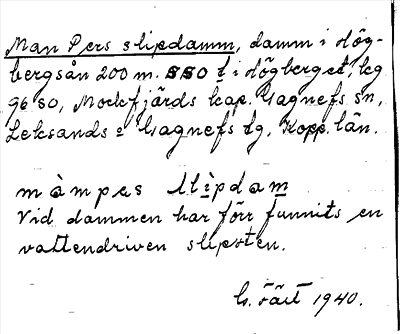 Man Pers slipdamm, damm i Hög-
bergsån 200 m. SSO t i Högberget, kg
96 SO, Mockfjärds kap. Gagnefs sn,
Leksands o Gagnefs tg, Kopp. län.
màmpas slìpdam
Vid dammen har förr funnits en
vattendriven slipsten.
G. 1940.